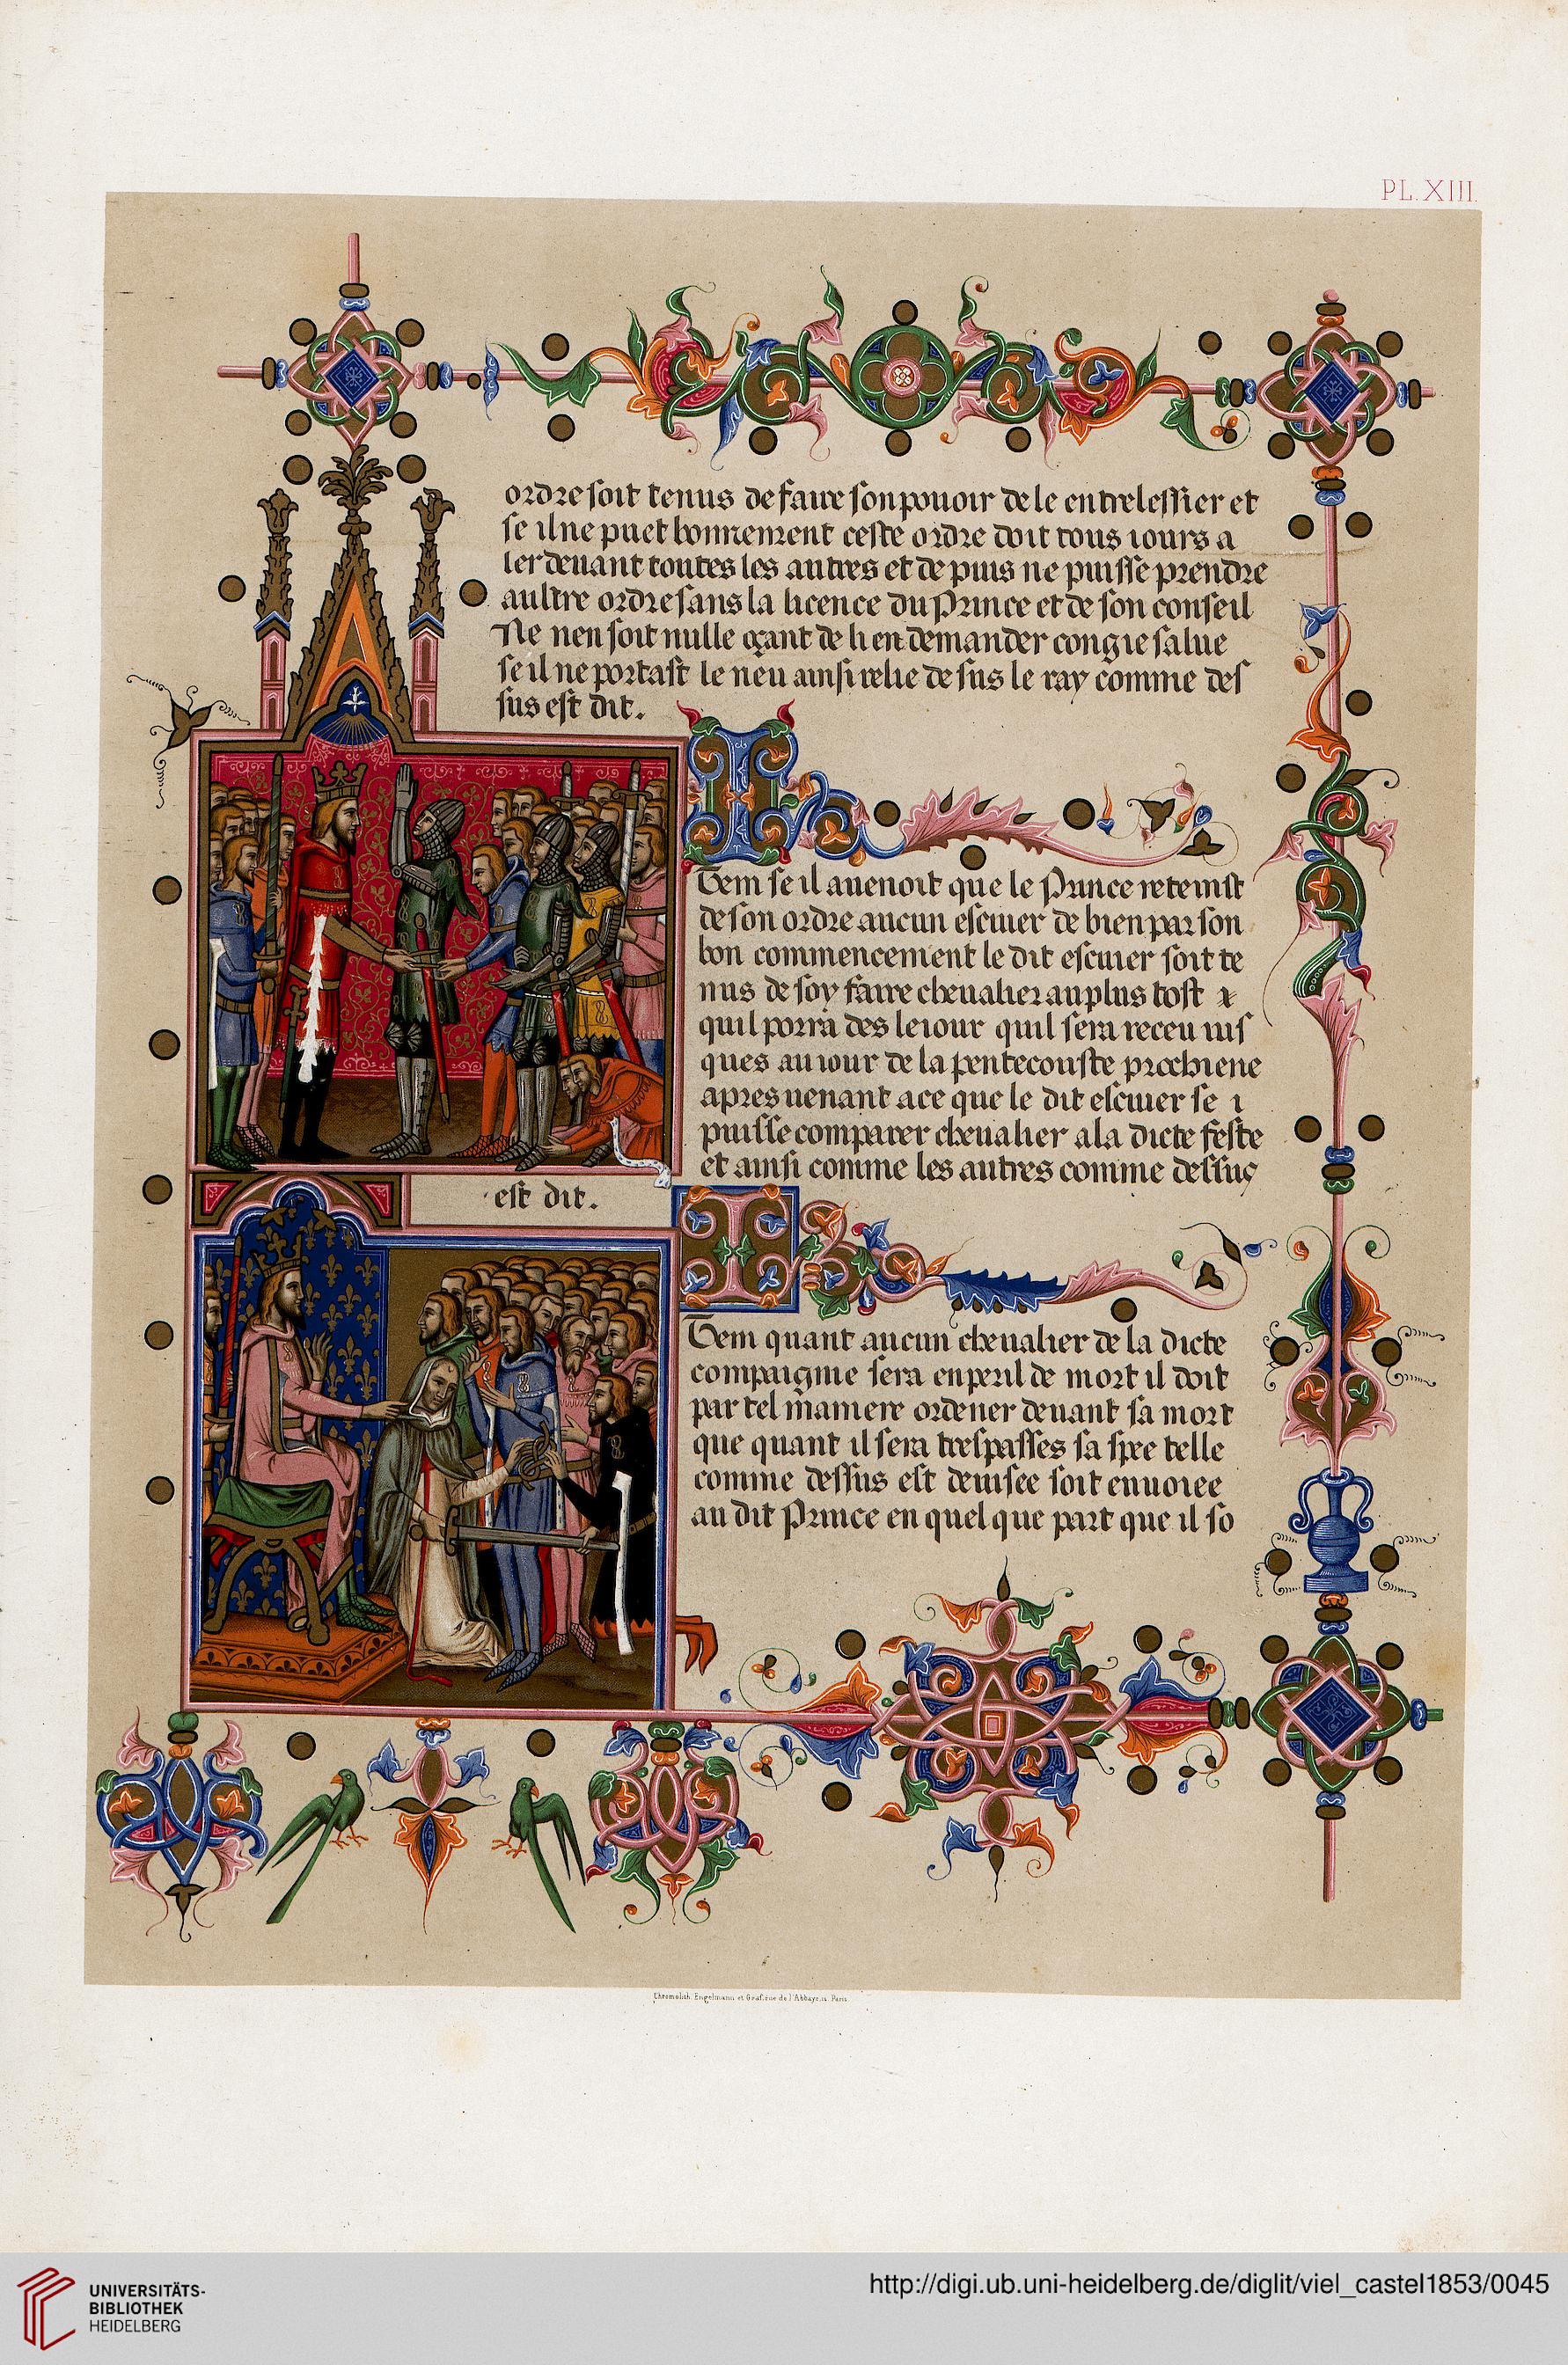 PL. XIII.
ordre soit tenus de faire son pouoir de le entrelessier et
se il ne puet bonnement ceste ordre doit tous iours a
ler deuant toutes les autres et de puis ne puisse prendre
aultre ordre sans la licence du Prince et de son conseil
Ne nen soit nulle de li en demander congie salue
se il ne portast le neu ainsi relie de sus le ray comme des
sus est dit.
I
Tem se il auenoit que le Prince reteinst
de son ordre aucun escuier de bien par son
bon commencement le dit escuier soit te
nus de soy faire cheualier au plus tost
quil porra des le iour quil sera receu ius
ques au iour de la pentecouste prochiene
apres uenant a ce que le dit escuier se i
puisse comparer cheualier a la dicte feste
et ainsi comme les autres comme dessus
est dit.
I
Tem quant aucun cheualier de la dicte
compaignie sera en peril de mort il doit
par tel maniere ordener deuant sa mort
que quant il sera trespasses sa spee telle
comme dessus est deuisee soit enuoiee
au dit Prince en quel que part que il so
Chromolith. Engelmann et Graf, rue de l'Abbaye, Paris.
UNIVERSITÄTS-
BIBLIOTHEK
HEIDELBERG
http://digi.ub.uni-heidelberg.de/diglit/viel_castel1853/0045